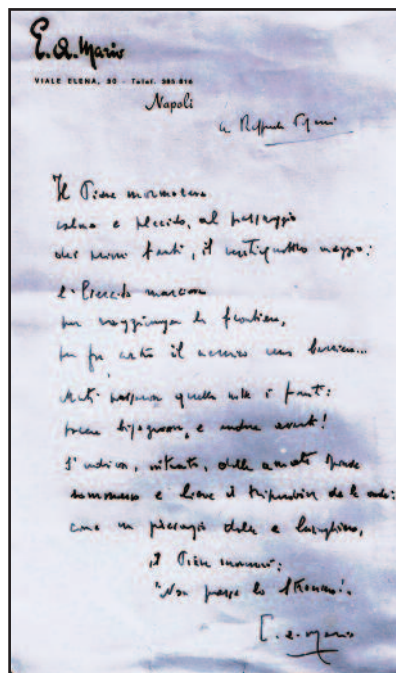 E. A. Mario
VIALE ELENA, 30 - Telef. 385.816
Napoli
a Raffaele
Il Piave mormorava
calmo e placido, al passaggio
dei primi fanti, il ventiquattro maggio:
l'Esercito marciava
per raggiunger la frontiera,
per far contro il nemico una barriera...
Muti passaron quella notte i fanti:
tacere bisognava, e andare avanti!
S'udiva, intanto, dalle amate sponde
sommesso e lieve il tripudiar de le onde:
come un presagio dolce e lusinghiero,
il Piave mormorò:
"Non passa lo straniero!"
E. A. Mario